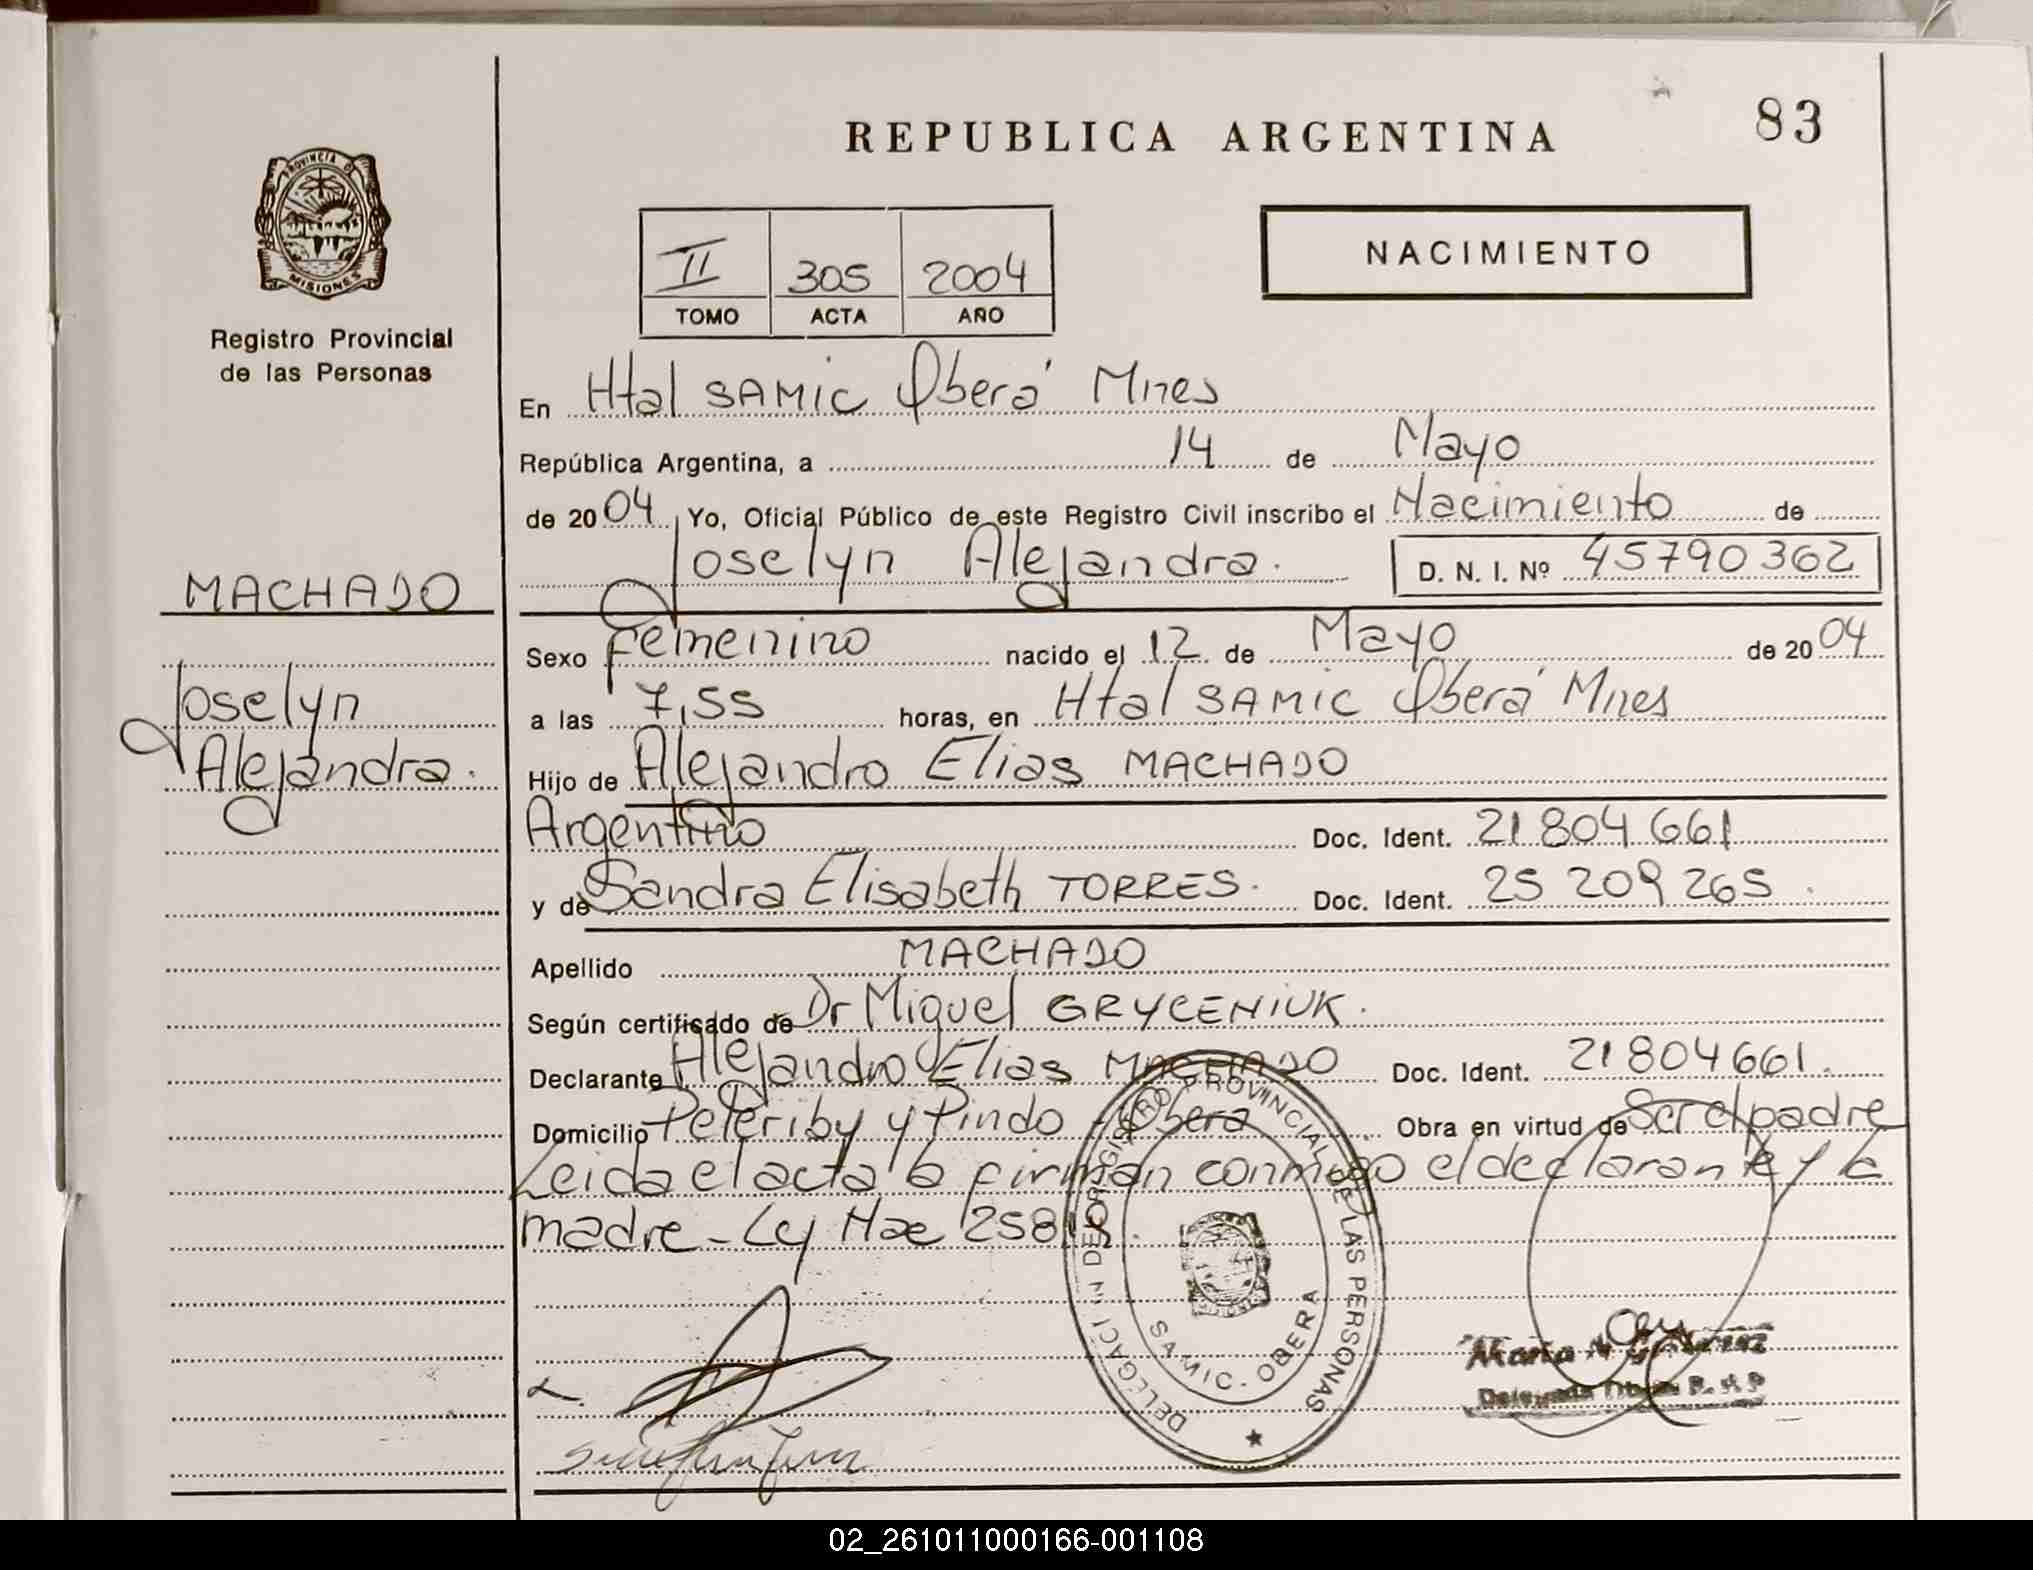 REPUBLICA ARGENTINA
83
PROVINCIA DE
MISIONES
Registro Provincial
de las Personas
II 305 2004
TOMO ACTA AÑO
NACIMIENTO
En Htal SAMIC Oberá Mnes
República Argentina, a 14 de Mayo
de 2004 Yo, Oficial Público de este Registro Civil inscribo el Nacimiento de
Joselyn Alejandra. D. N. I. Nº 45790362
MACHADO
Joselyn
Alejandra.
Sexo Femenino nacido el 12 de Mayo de 2004
a las 7,55 horas, en Htal SAMIC Oberá Mnes
Hijo de Alejandro Elias MACHADO
Argentino Doc. Ident. 21 804 661
y de Sandra Elisabeth TORRES. Doc. Ident. 25 209 265.
Apellido MACHADO
Según certificado de Dr Miguel GRYCENIUK.
Declarante Alejandro Elias MACHADO Doc. Ident. 21804661.
Domicilio Peteriby y Pindo Obera Obra en virtud de Ser el padre
Leida el acta la firman conmigo el declarante y la
madre - Ley Nac
DELEGACI N DE REGISTRO PROVINCIAL DE LAS PERSONAS
SAMIC - OBERA
Maria
R. P. P
02_261011000166-001108